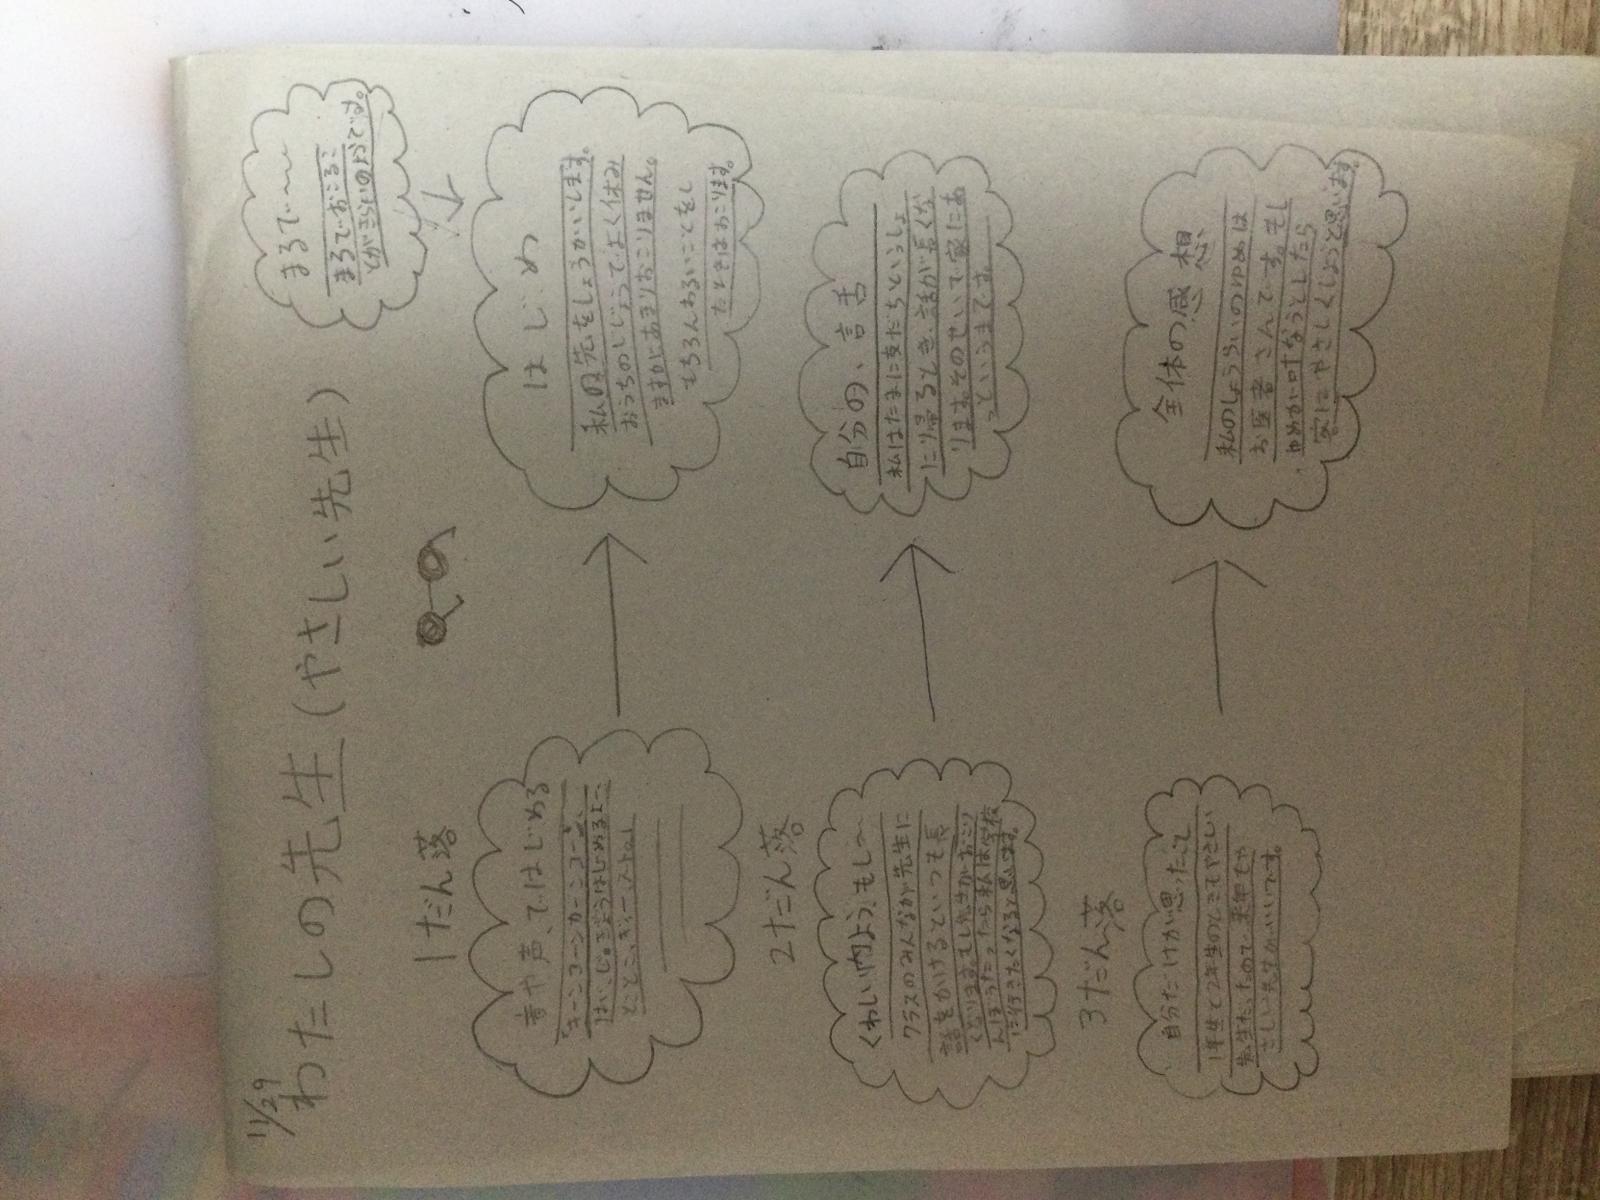 11/29
わたしの先生(やさしい先生)
まるで〜
まるでおこるこ
とがきらいのようです。
1だん落
音や声、ではじめる
「キーンコーンカーンコーン」
はい、じゅぎょうはじめるよー、
はじめ
先生をしょうかいします。
おうちのじじょうでよく休み
ますがあまりおこりません。
もちろんわるいことをし
たときはおこります。
2だん落
くわしい内よう、もし〜
クラスのみんなが先生に
話をかけるといつも長
くなります。もし先生がおこり
んぼうだったら私は学校
に行きたくなると思います。
自分の、言舌
私はたまに友だちといっしょ
に帰るとき、話が長くな
ります。そのせいで家にあ
というまです。
3だん落
自分だけが思ったこと
1年生と2年生のときもやさしい
先生だったので、来年もや
さしい先生がいいです。
全体の感想
私のしょうらいのゆめは
お医者さんです。もし
ゆめが叶なうとしたら
家はやさしくしようと思います。